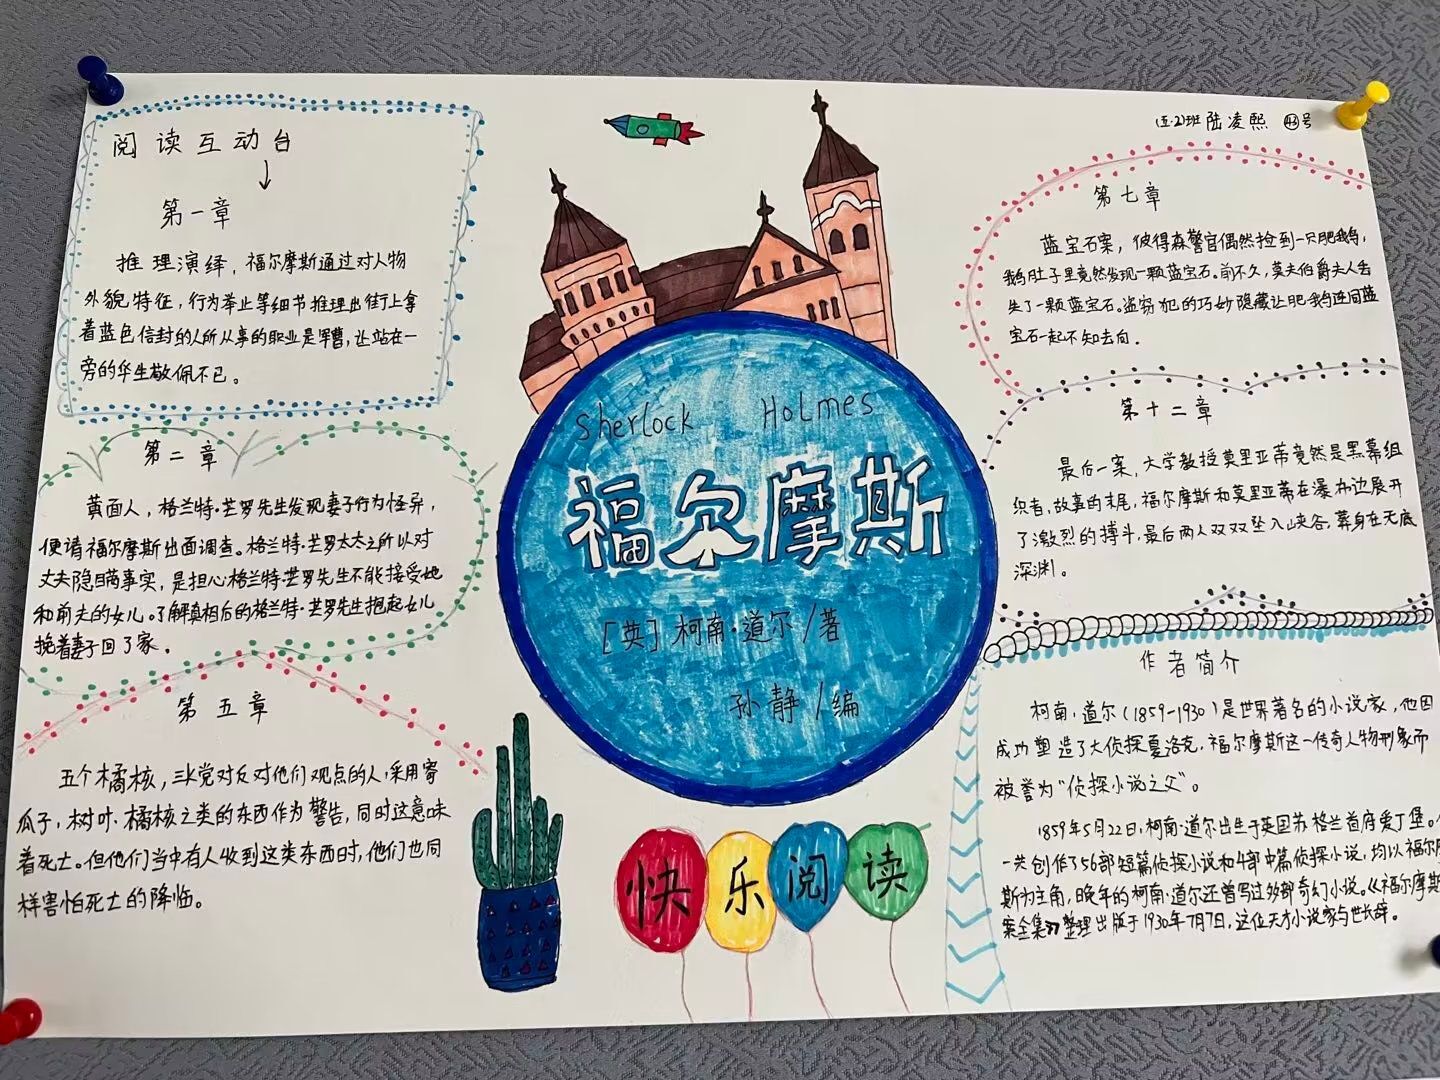 阅读互动台
第一章
推理演绎，福尔摩斯通过对人物
外貌特征，行为举止等细节推理出街上拿
着蓝色信封的人所从事的职业是军曹，让站在一
旁的华生敬佩不已。
第二章
黄面人，格兰特·芒罗先生发现妻子行为怪异，
便请福尔摩斯出面调查。格兰特·芒罗太太之所以对
丈夫隐瞒事实，是担心格兰特·芒罗先生不能接受她
和前夫的女儿。了解真相后的格兰特·芒罗先生抱起女儿
挽着妻子回了家。
第五章
五个橘核，三K党对反对他们观点的人，采用寄
瓜子，树叶·橘核之类的东西作为警告，同时这意味
着死亡。但他们当中有人收到这类东西时，他们也同
样害怕死亡的降临。
Sherlock Holmes
福尔摩斯
[英]柯南·道尔/著
孙静/编
快乐阅读
(五·2)班 陆凌熙 43号
第七章
蓝宝石案，彼得森警官偶然捡到一只肥鹅，
鹅肚子里竟然发现一颗蓝宝石。前不久，莫夫伯爵夫人丢
失了一颗蓝宝石。盗窃犯的巧妙隐藏让肥鹅连同蓝
宝石一起不知去向。
第十二章
最后一案，大学教授莫里亚蒂竟然是黑幕组
织者，故事的末尾，福尔摩斯和莫里亚蒂在瀑布边展开
了激烈的搏斗，最后两人双双坠入峡谷，葬身在无底
深渊。
作者简介
柯南·道尔(1859-1930)是世界著名的小说家，他因
成功塑造了大侦探夏洛克，福尔摩斯这一传奇人物形象而
被誉为“侦探小说之父”。
1859年5月22日，柯南·道尔出生于英国苏格兰首府爱丁堡。
一共创作了56部短篇侦探小说和4部中篇侦探小说，均以福尔
斯为主角，晚年的柯南·道尔还曾写过多部奇幻小说。《福尔摩斯
案全集》整理出版于1930年7月7日，这位天才小说家与世长辞。